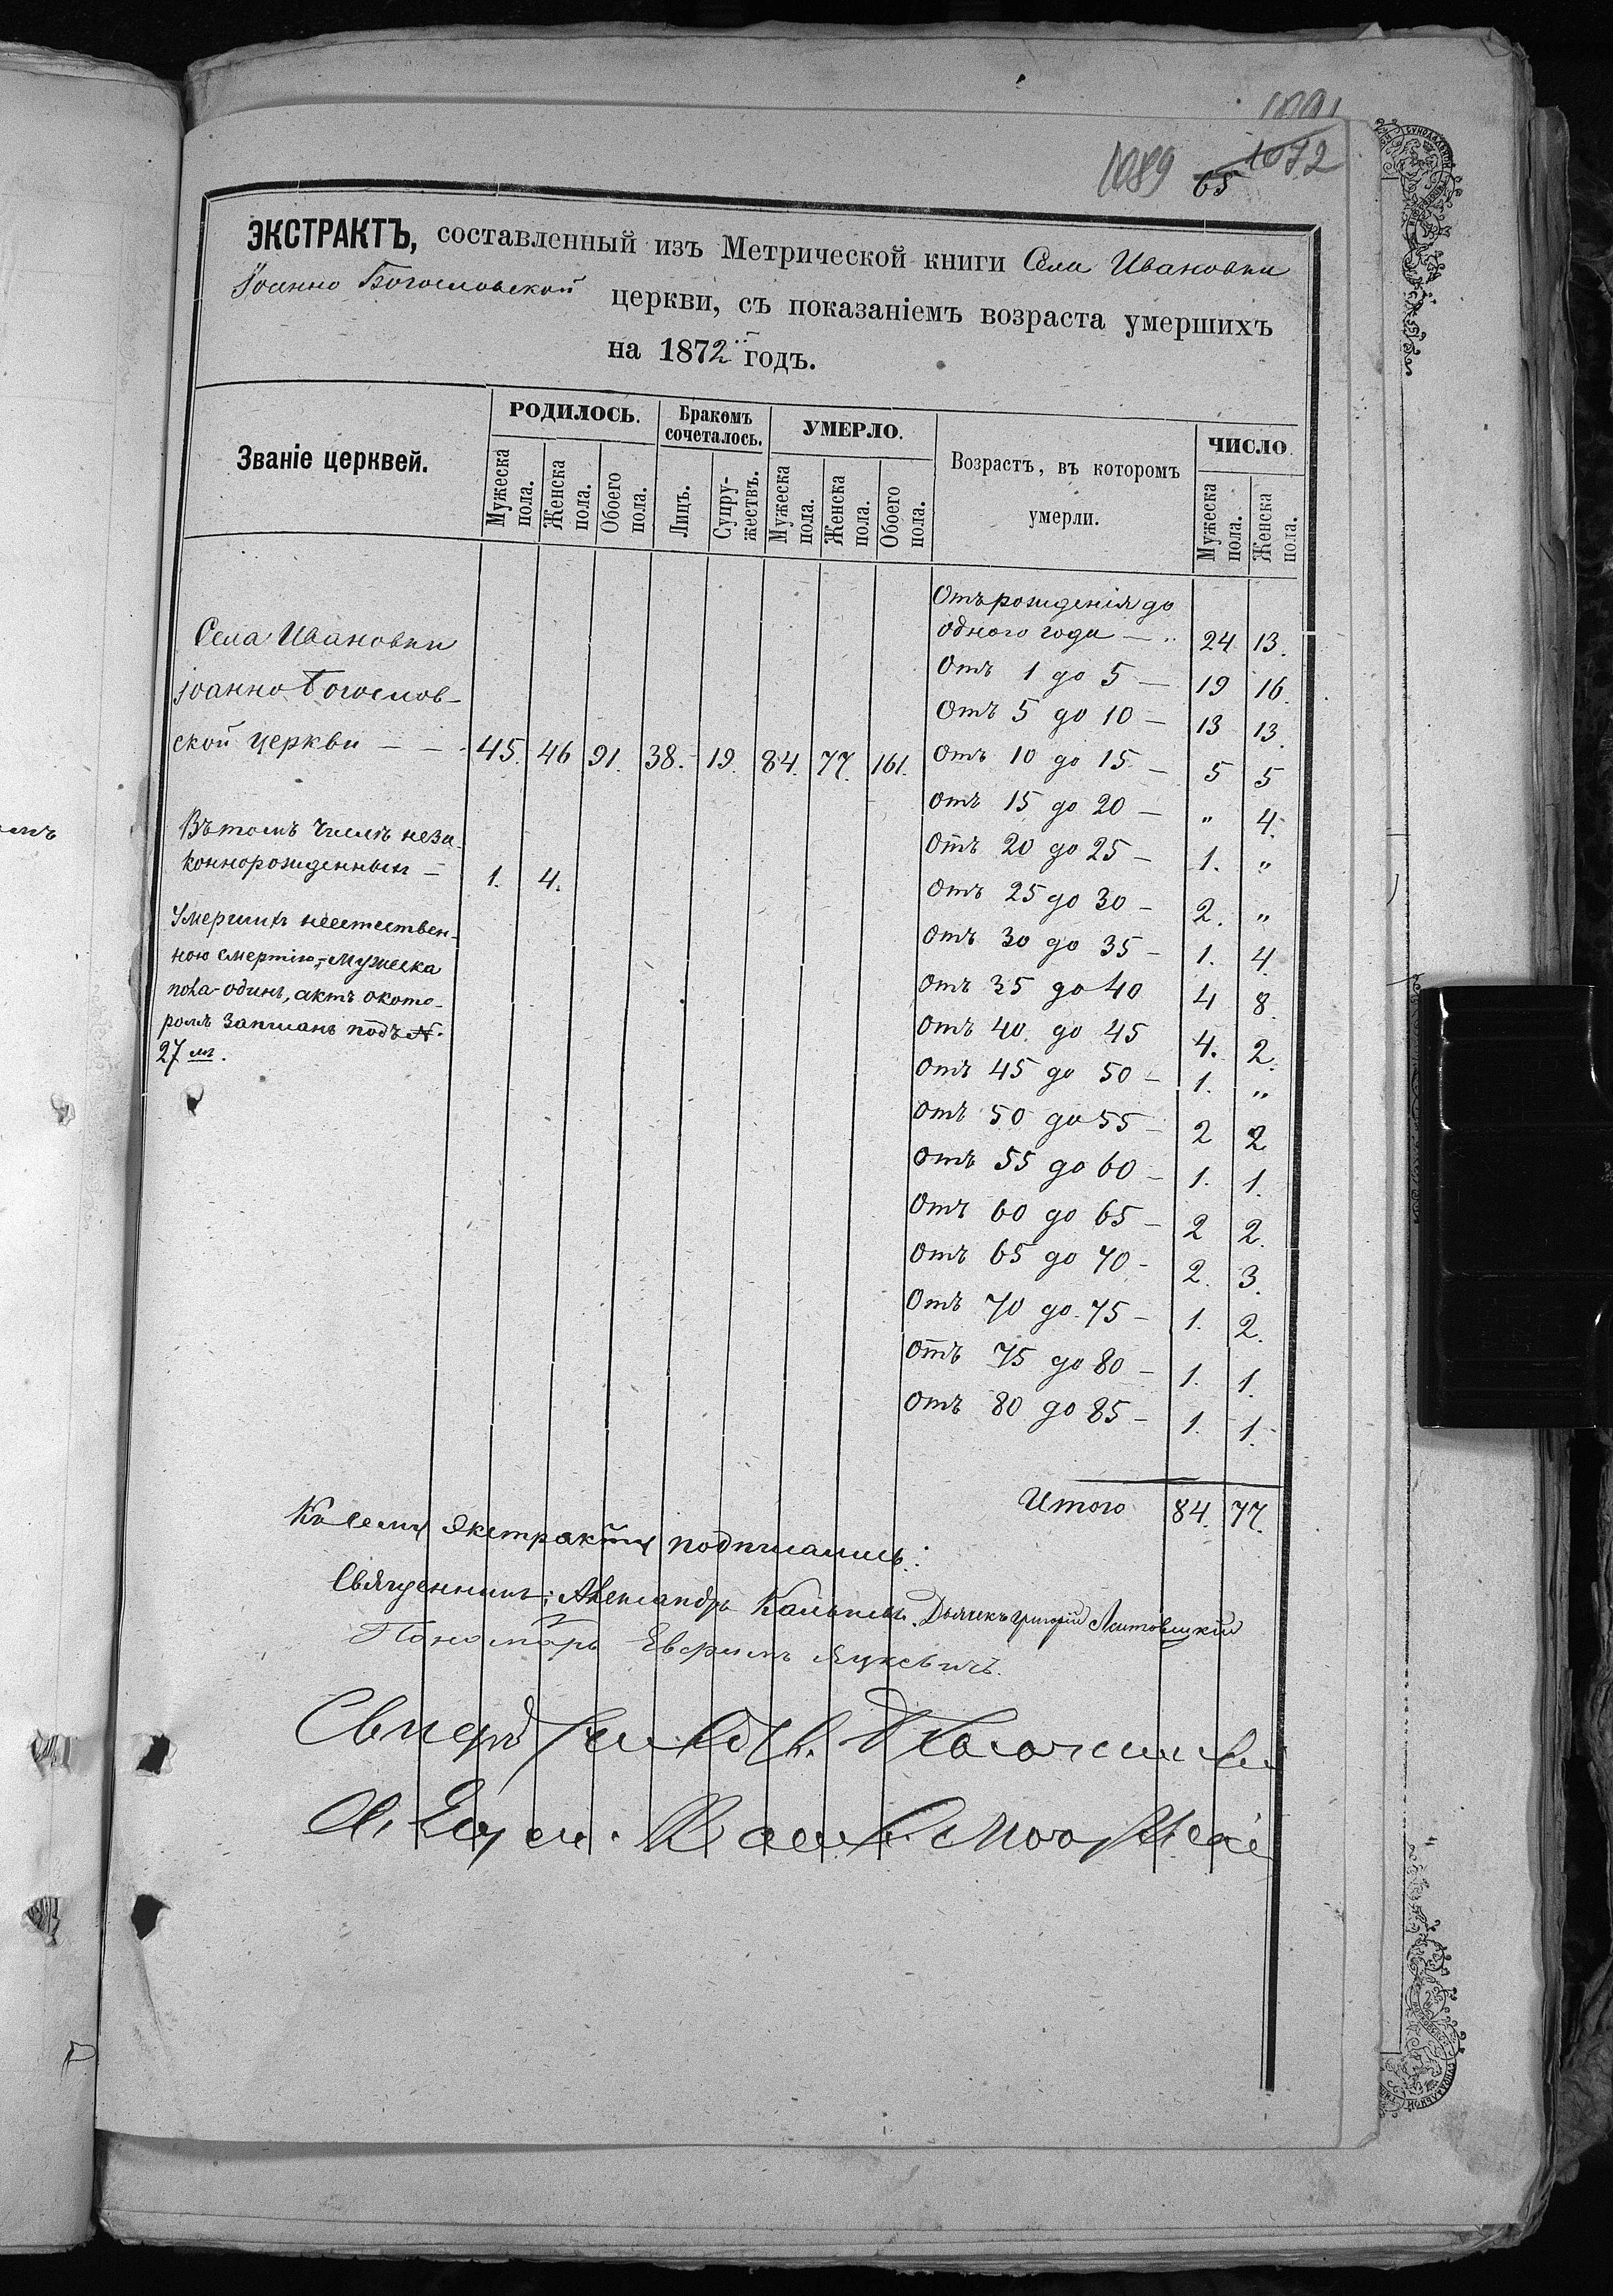 1089 65 1072
ЭКСТРАКТЪ, составленный изъ Метрической книги Села Ивановки
Іоанно Богословской церкви, съ показаніемъ возраста умершихъ
на 1872 годъ.
Званіе церквей.
РОДИЛОСЬ.
Мужеска пола.
Женска пола.
Обоего пола.
Бракомъ сочеталось.
Лицъ.
Супружествъ.
УМЕРЛО.
Мужеска пола.
Женска пола.
Обоего пола.
Возрастъ, въ которомъ
умерли.
ЧИСЛО.
Мужеска пола.
Женска пола.
Села Ивановки
Іоанно Богослов-
ской церкви — — 45. 46 91. 38. 19. 84. 77. 161.
Въ томъ числѣ неза-
коннорожденныхъ — 1. 4.
Умершихъ неестествен-
ною смертію, мужеска
пола-одинъ, актъ о кото-
ромъ записанъ подъ №
27 мъ.
Отъ рожденія до
одного года — 24 13.
Отъ 1 до 5 — 19 16.
Отъ 5 до 10 — 13 13.
Отъ 10 до 15 — 5 5
Отъ 15 до 20 — „ 4.
Отъ 20 до 25 — 1. „
Отъ 25 до 30 — 2. „
Отъ 30 до 35 — 1. 4.
Отъ 35 до 40 4 8.
Отъ 40 до 45 4. 2.
Отъ 45 до 50 — 1. „
Отъ 50 до 55 — 2 2
Отъ 55 до 60 — 1. 1.
Отъ 60 до 65 — 2 2.
Отъ 65 до 70 — 2. 3.
Отъ 70 до 75 — 1. 2.
Отъ 75 до 80 — 1. 1.
Отъ 80 до 85 — 1. 1.
Итого 84. 77.
Къ сему экстракту подписались:
Священникъ: Александръ Дьячекъ Григорій Литовицкій
Пономарь Евфимъ Яцкевичъ.